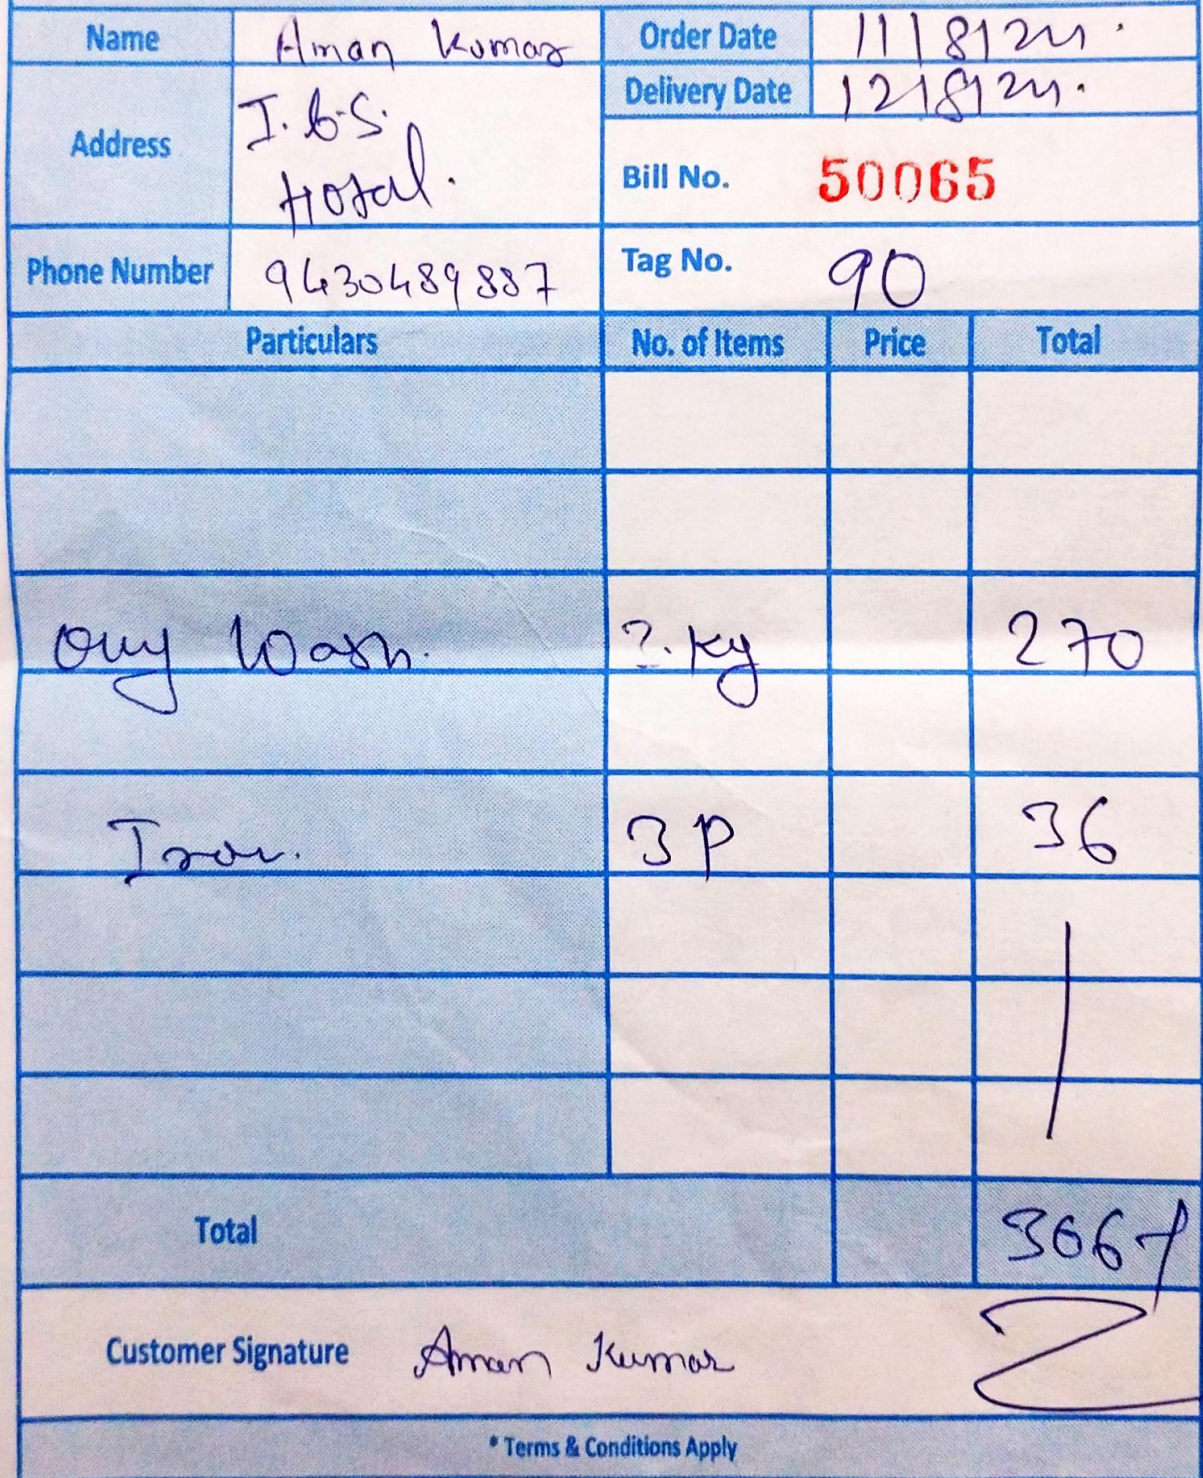 Name Aman Kumar Order Date 11/8/24.
Delivery Date 12/8/24.
Address I.B.S.
Hotal.
Bill No. 50065
Phone Number 9430489887 Tag No. 90
Particulars No. of Items Price Total
Only Wash. ?.Kg 270
Iron. 3P 36
Total 306/
Customer Signature Aman Kumar
* Terms & Conditions Apply